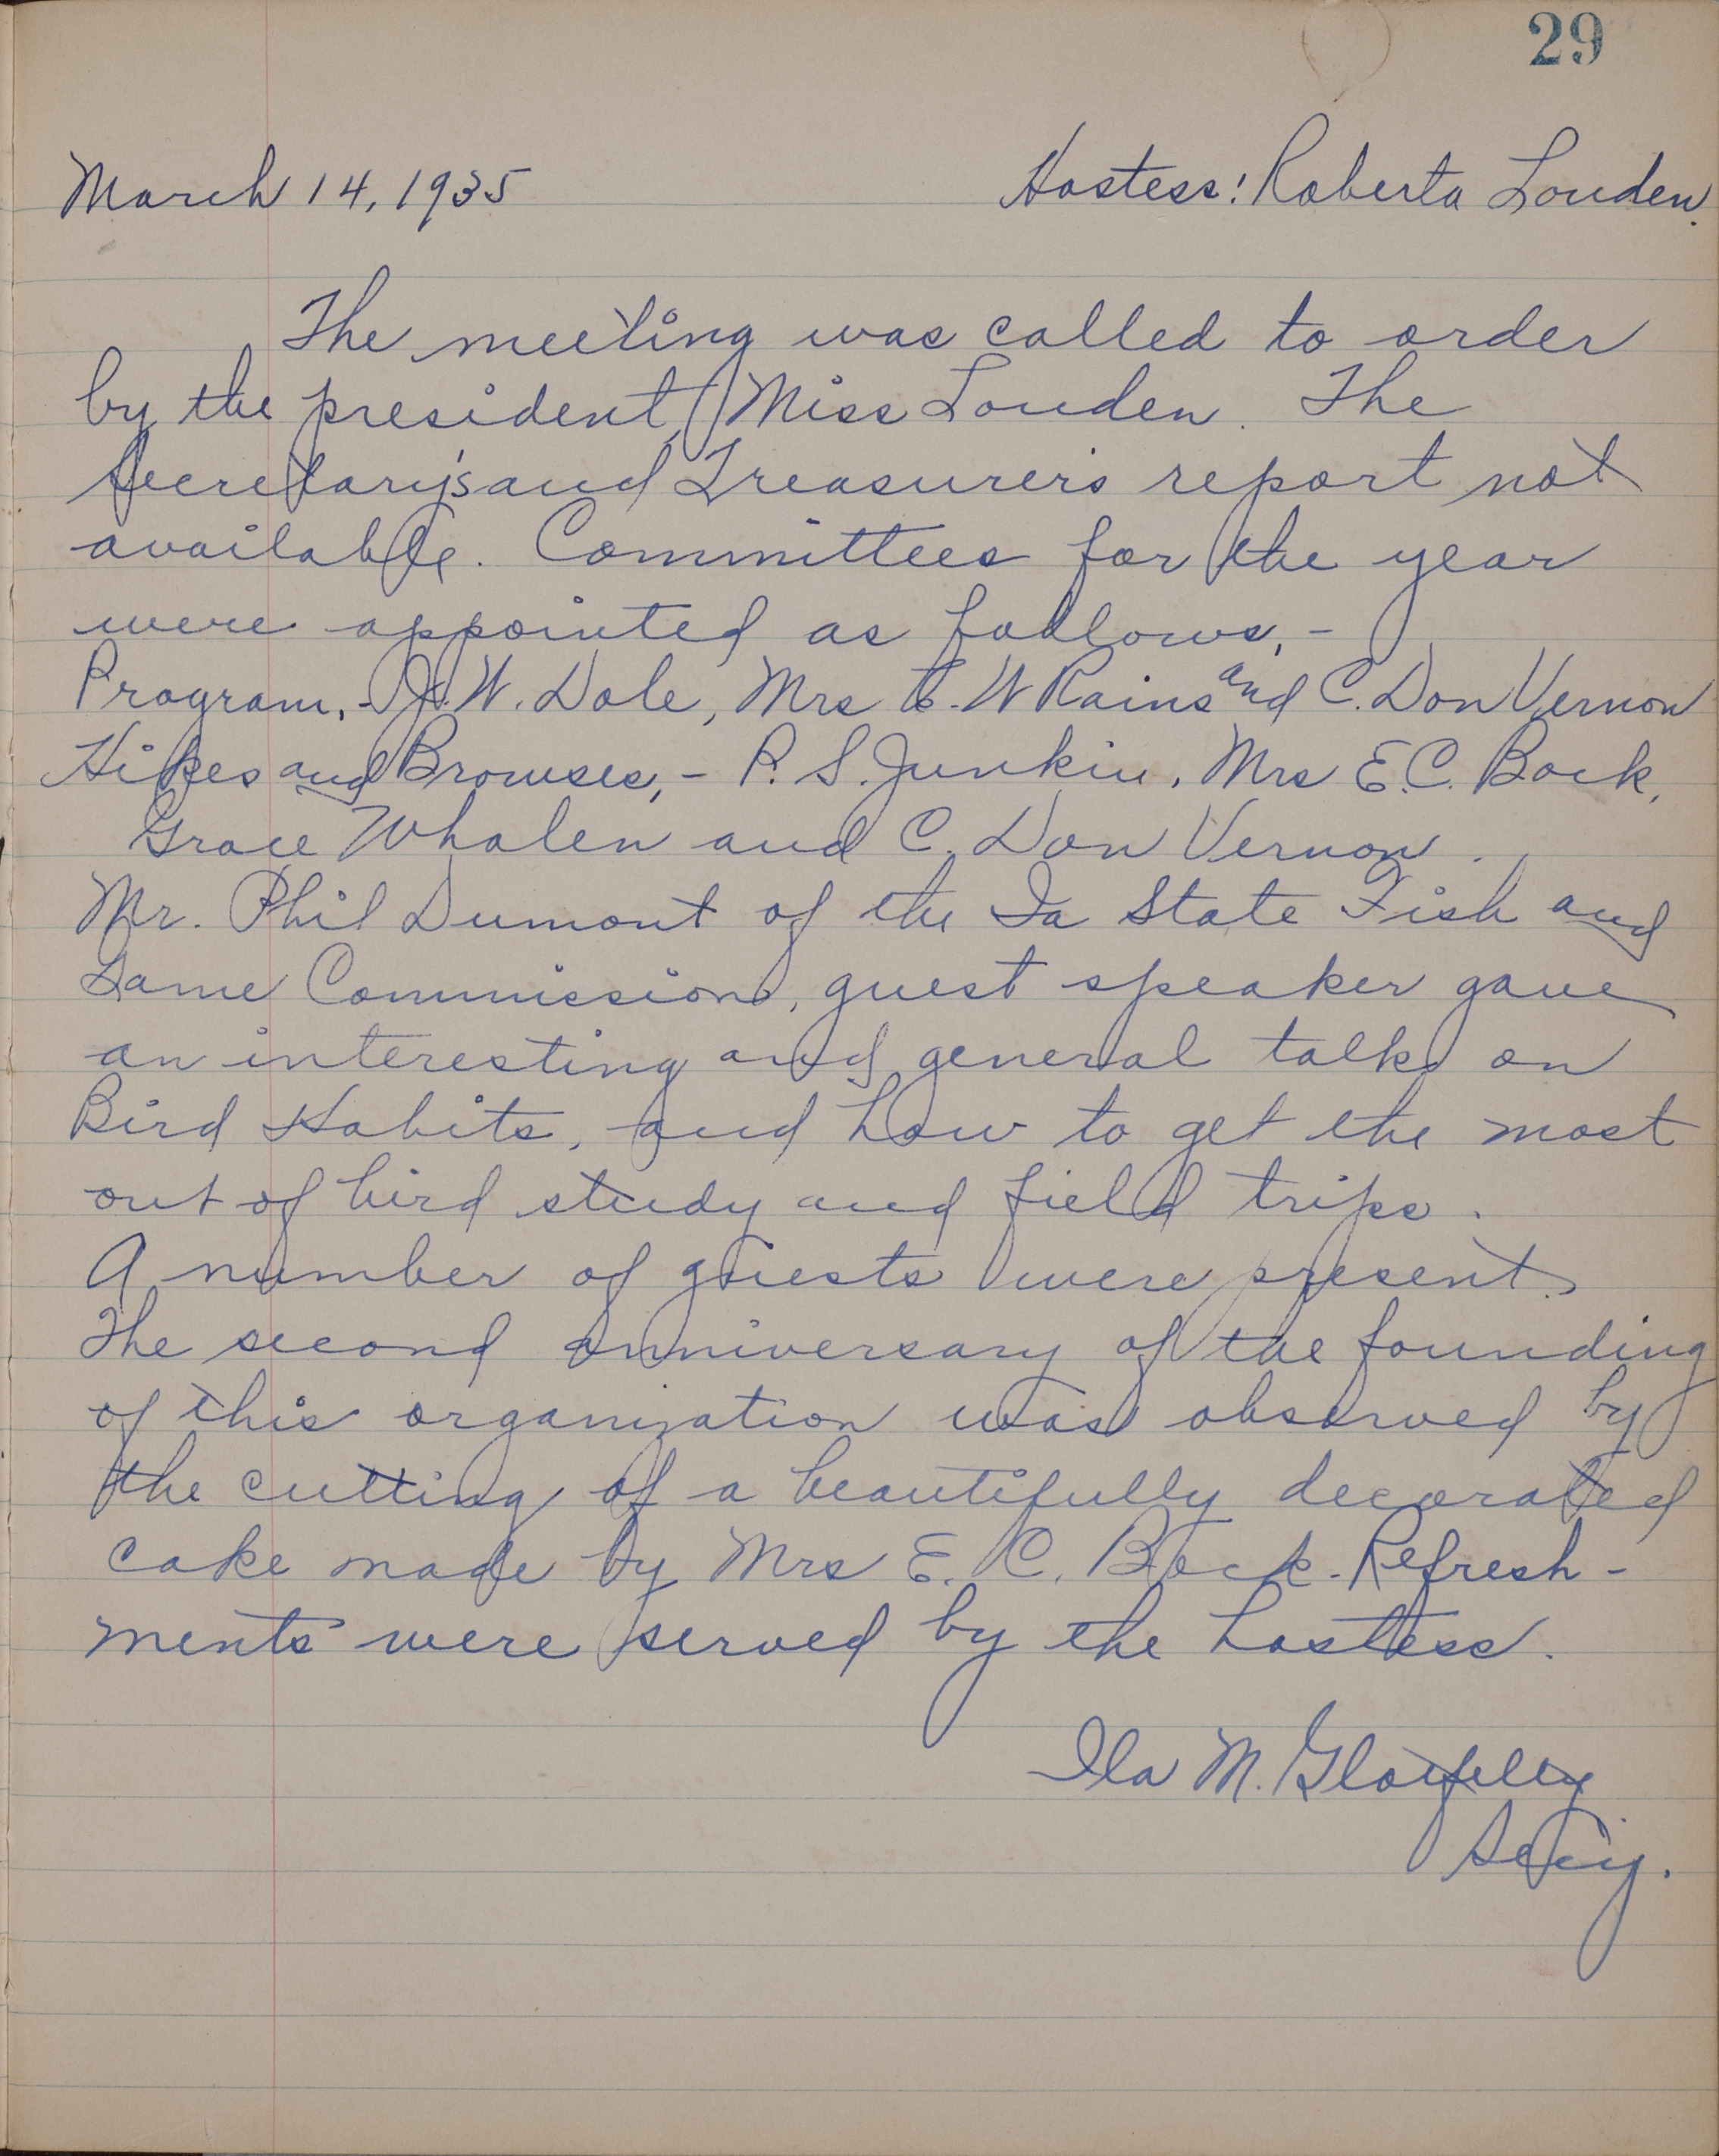 29
March 14, 1935 Hostess: Roberta Louden.
The meeting was called to order
by the president, Miss Louden. The
Secretary's and Treasurer's report not
available. Committees for the year
were appointed as follows, -
Program, - J. W. Dole, Mrs E. W Rains and C. Don Vernon
Hikes and Browses, - P. S. Junkin, Mrs E. C. Bock,
Grace Whalen and C. Don Vernon.
Mr. Phil Dumont of the Ia State Fish and
Game Commission, guest speaker gave
an interesting and general talk on
Bird Habits, and how to get the most
out of bird study and field trips.
A number of guests were present.
The second anniversary of the founding
of this organization was observed by
the cutting of a beautifully decorated
cake made by Mrs E. C. Bock. Refresh-
ments were served by the hostess.
Ila M.
Sec'y.